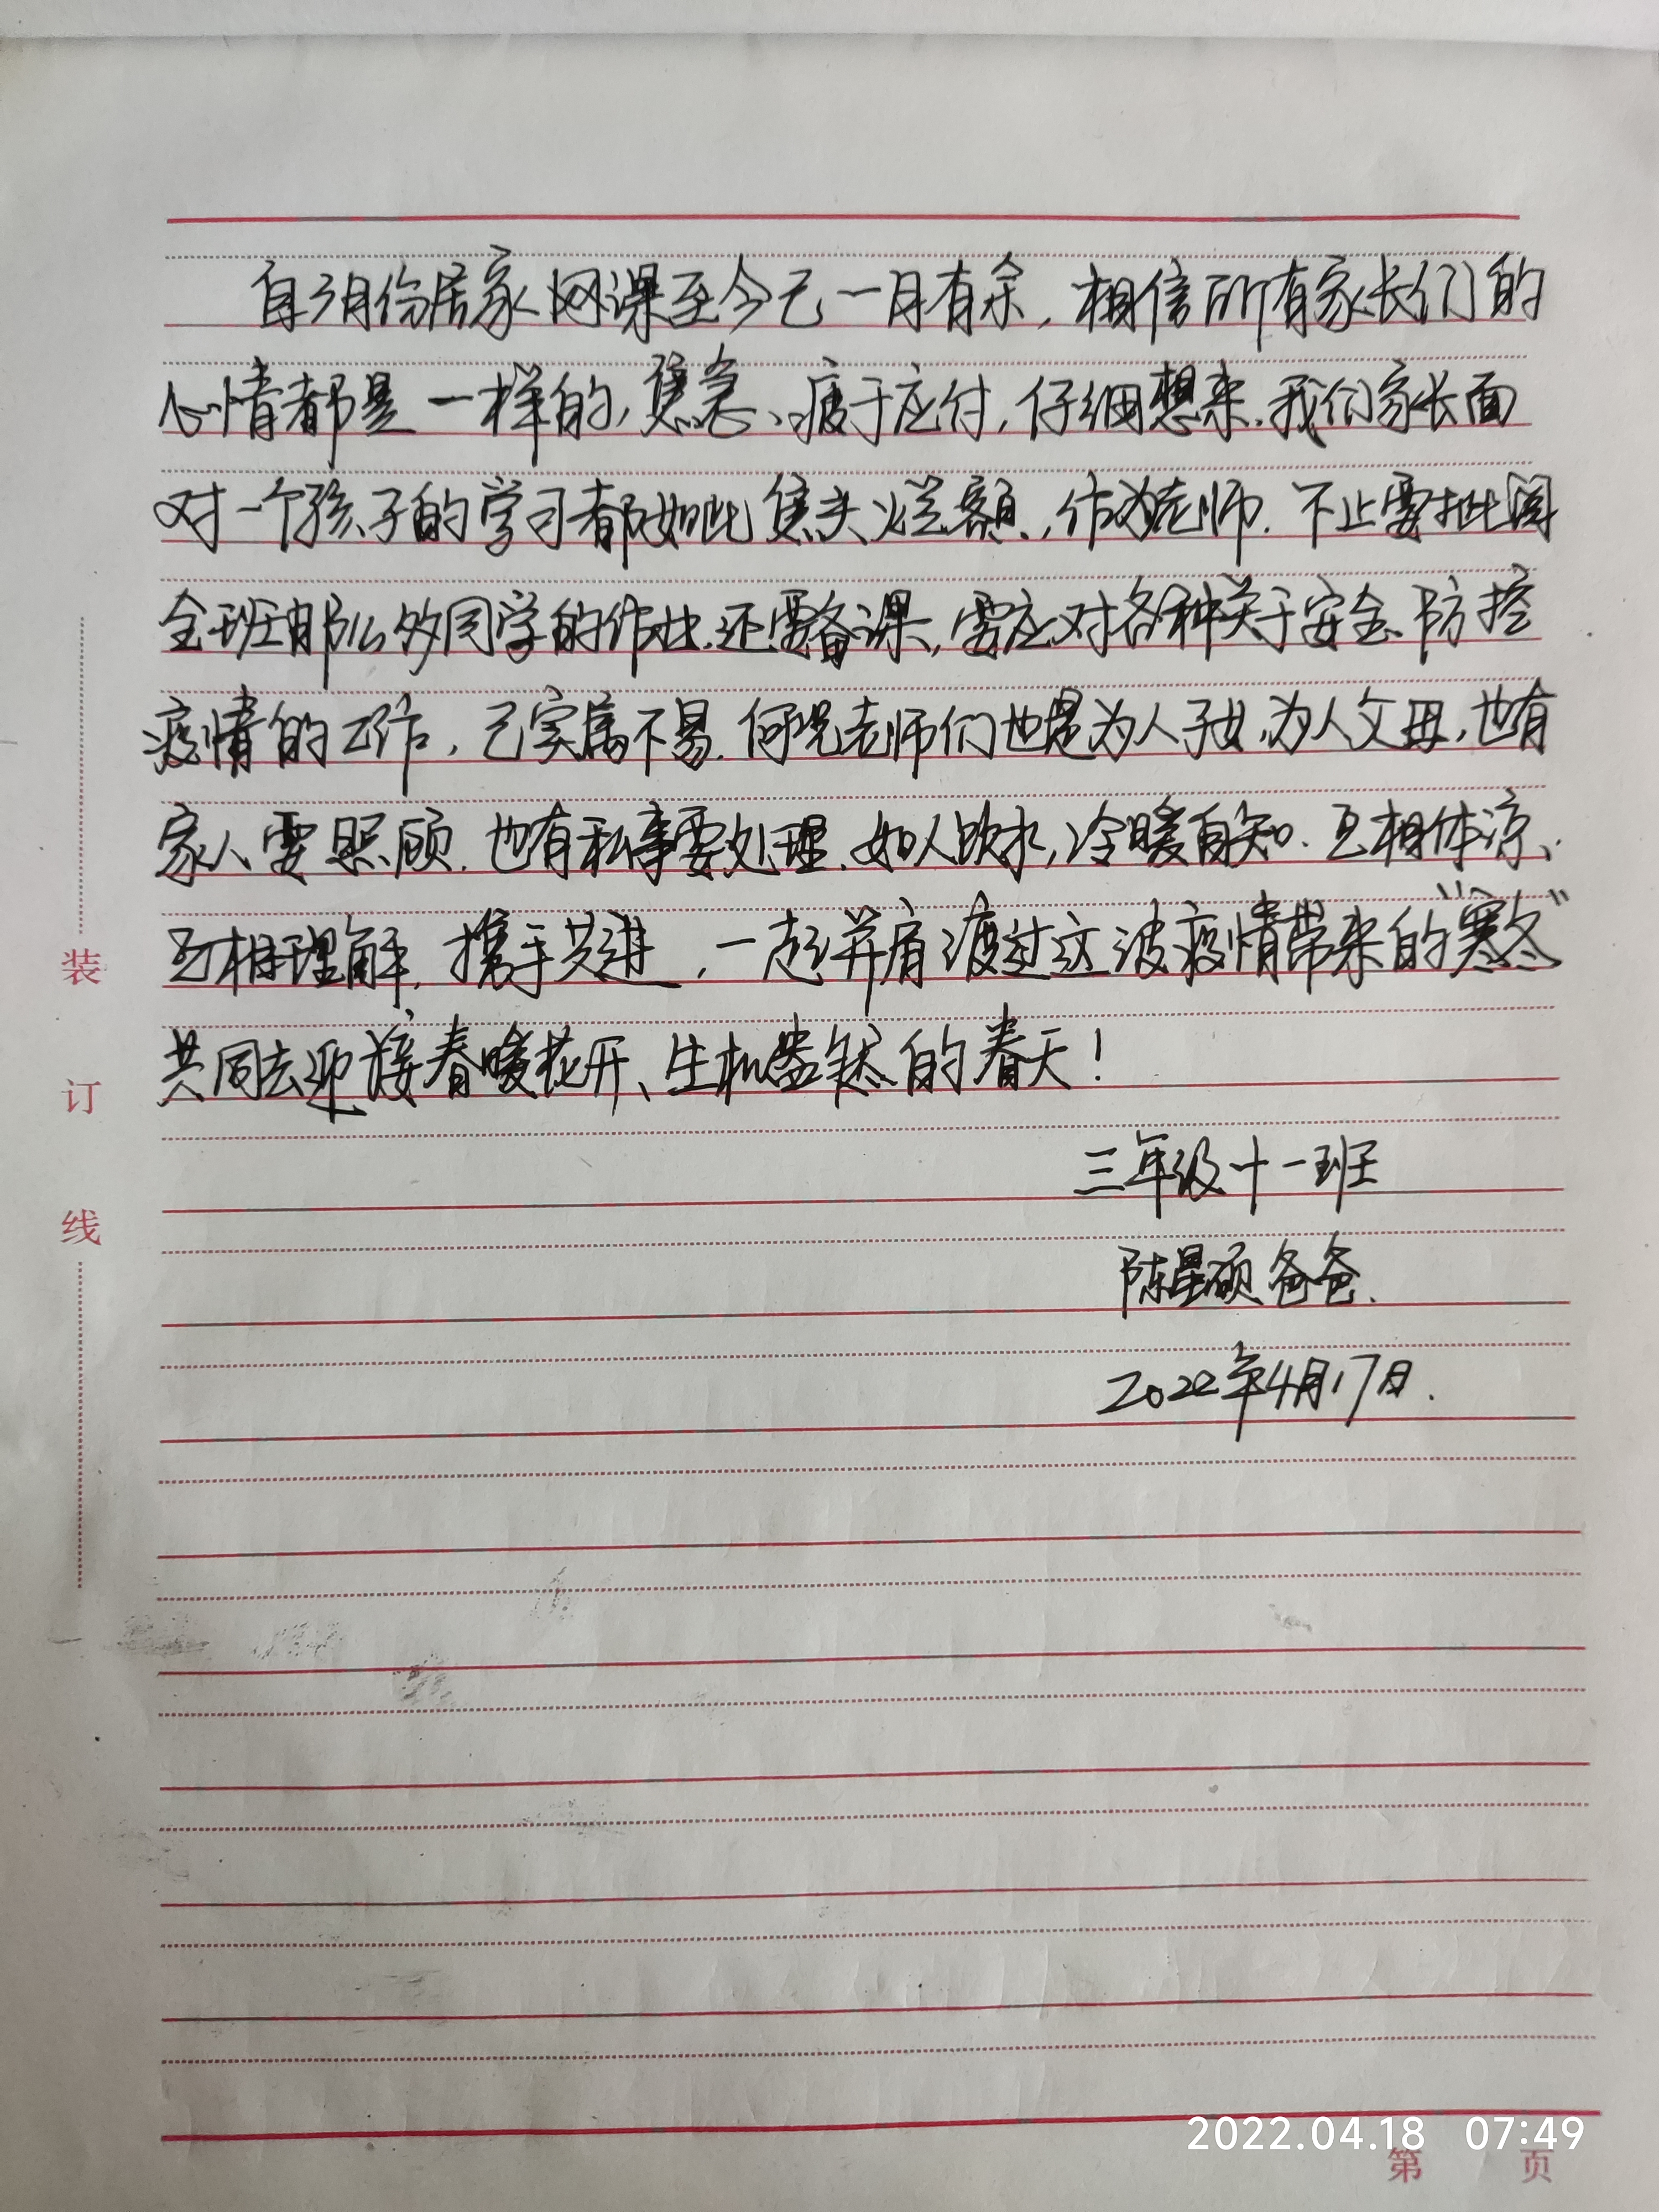 自3月份居家网课至今已一月有余，相信所有家长们的
心情都是一样的，焦急、疲于应付，仔细想来，我们家长面
对一个孩子的学习都如此焦头烂额，作为老师，不止要批阅
全班那么多同学的作业，还要备课，需应对各种关于安全、防控
疫情的工作，已实属不易，何况老师们也是为人子女，为人父母，也有
家人要照顾，也有私事要处理，如人饮水，冷暖自知。互相体谅、
互相理解，携手共进，一起并肩渡过这波疫情带来的“寒冬”
共同去迎接春暖花开、生机盎然的春天！
三年级十一班
陈星硕爸爸.
2022年4月17日.
装
订
线
2022.04.18 07:49
第 页